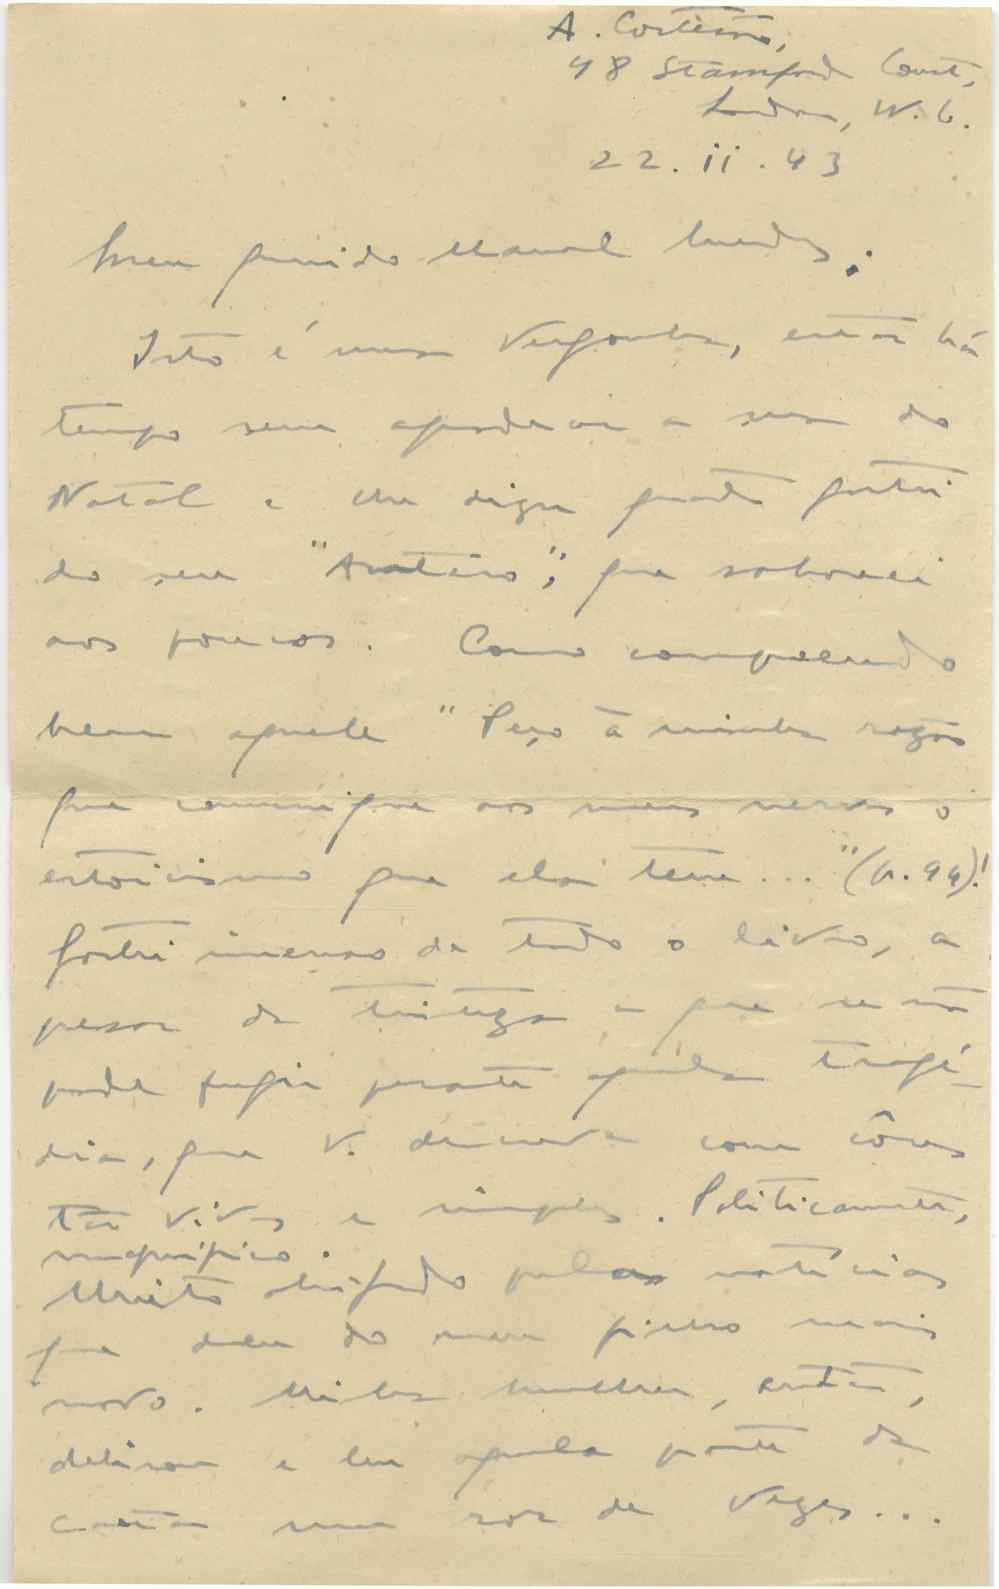 A. Cortesão,
48 Stamford Court,
London, W.6.
22.ii.43
Meu querido Manuel Mendes:
Isto é uma vergonha, estar há
tempo sem agradecer a sua do
Natal e lhe dizer quanto gostei
do seu "Aventino", que saboreei
aos poucos. Como compreendo
bem aquele "Peço à minha razão
que comunique aos meus nervos o
estoicismo que ela tem..." (p. 94)!
Gostei imenso de todo o livro, a
pesar da tristeza a que se não
pode fugir perante aquela tragé-
dia, que V. descreve com côres
tão vivas e simples. Politicamente,
magnífico.
Muito obrigado pelas notícias
que deu do meu piqueno mais
novo. Minha mulher, então,
delirou e leu aquela parte da
carta um ror de vezes...